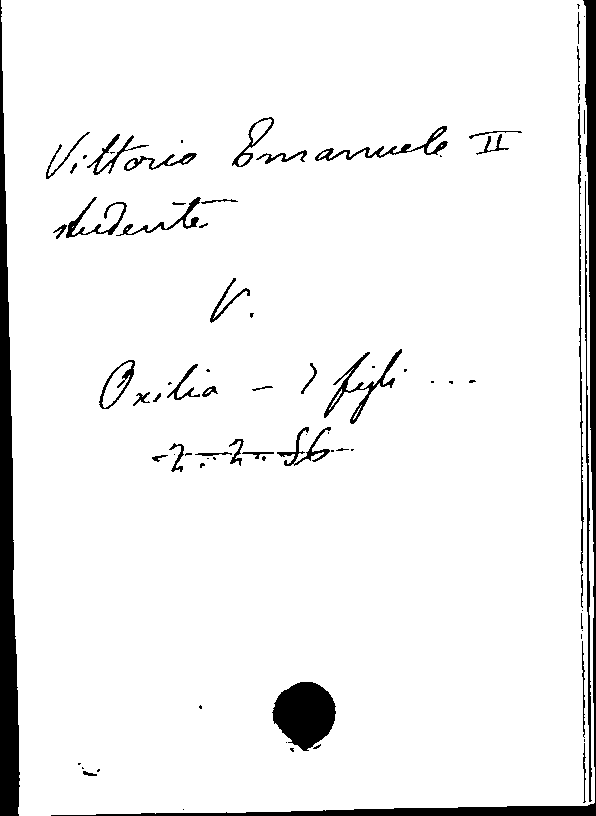 Vittorio Emanuele II
studente
V.
Oxilia – I figli ...
2.2.56